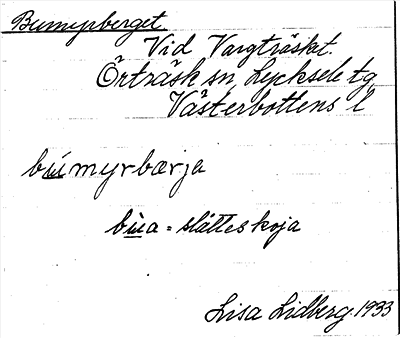 Bumyrberget
Vid Vargträsket.
Örträsk sn, Lycksele tg
Västerbottens l
bu̲myrbærja
bu̲a = slåtteskoja
Lisa Lidberg 1933